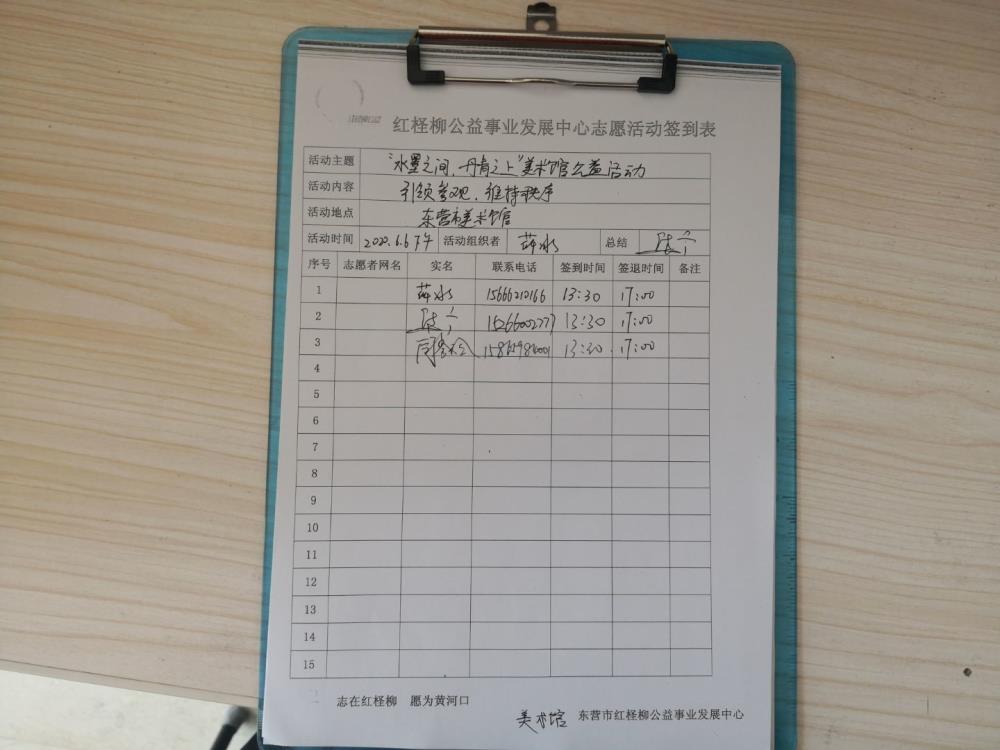 红柽柳公益事业发展中心志愿活动签到表
活动主题 “水墨之间,丹青之上”美术馆公益活动
活动内容 引领参观、维持秩序
活动地点 东营市美术馆
活动时间 2020.6.6下午 活动组织者 薛冰 总结
序号 志愿者网名 实名 联系电话 签到时间 签退时间 备注
1 薛冰 15666212166 13:30 17:00
2 13:30 17:00
3 13:30 17:00
4
5
6
7
8
9
10
11
12
13
14
15
志在红柽柳 愿为黄河口
美术馆 东营市红柽柳公益事业发展中心